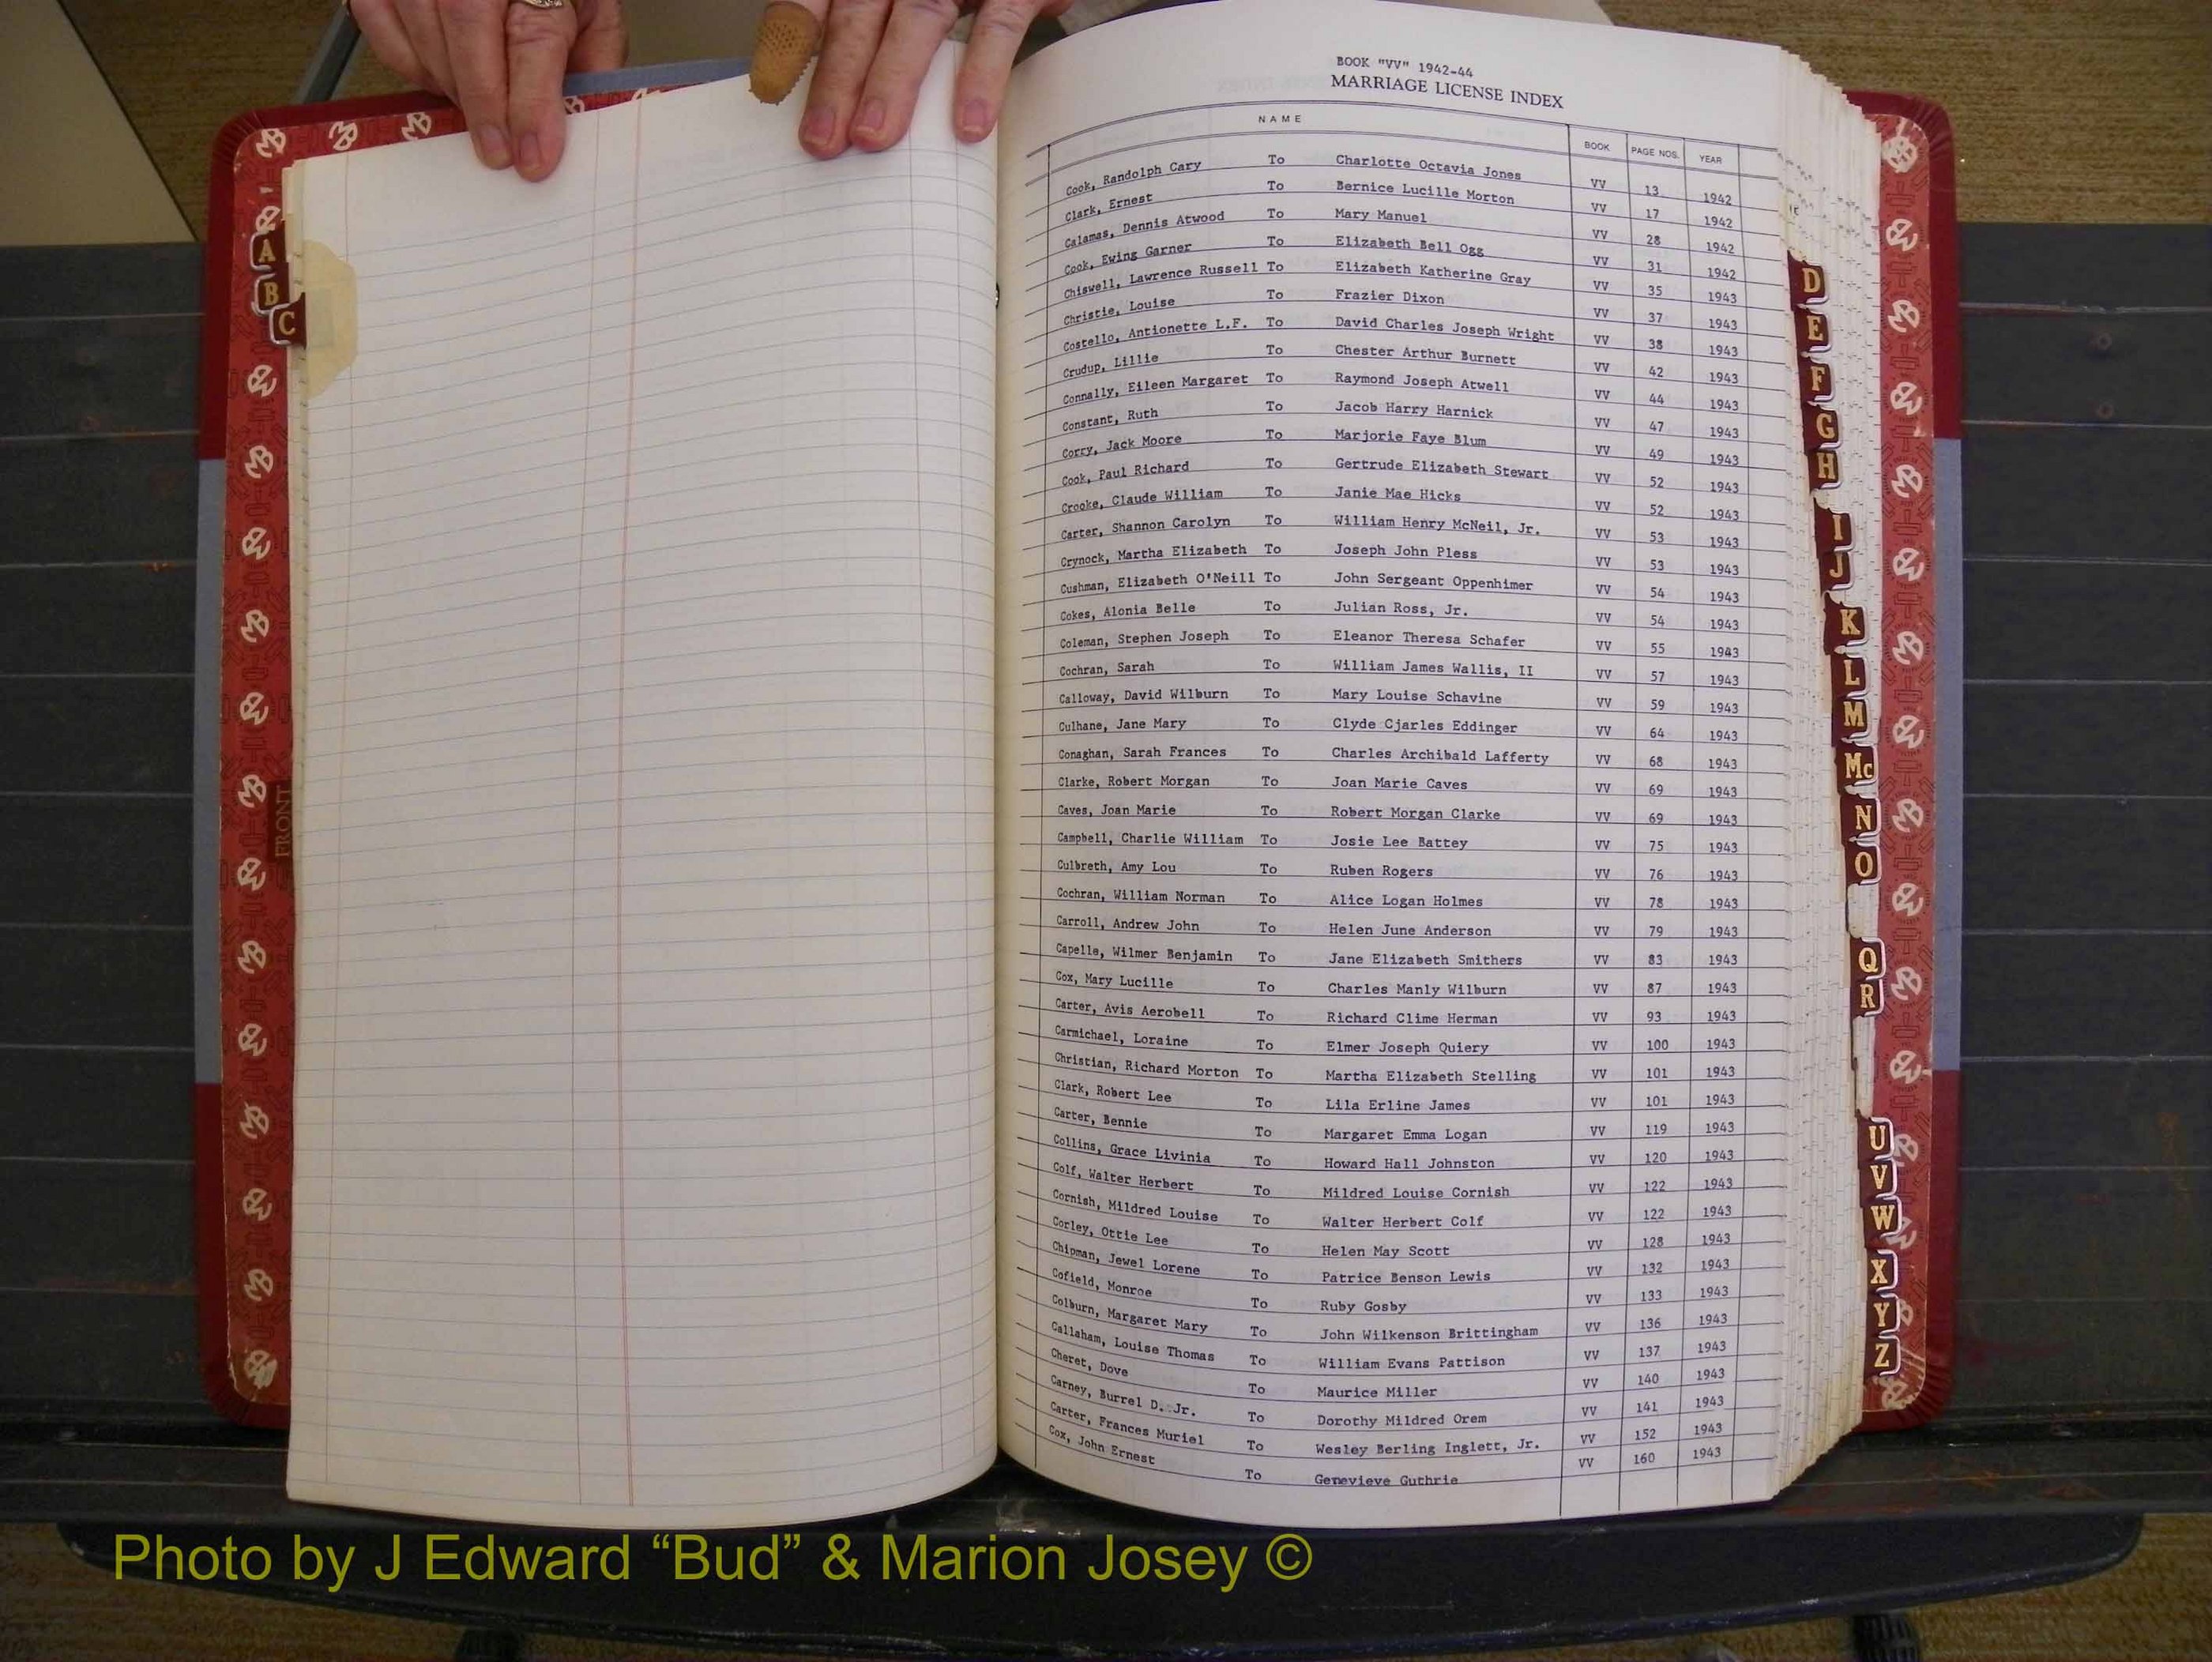 BOOK "VV" 1942-44
MARRIAGE LICENSE INDEX
NAME BOOK PAGE NOS. YEAR
Cook, Randolph Cary To Charlotte Octavia Jones VV 13 1942
Clark, Ernest To Bernice Lucille Morton VV 17 1942
Calamas, Dennis Atwood To Mary Manuel VV 28 1942
Cook, Ewing Garner To Elizabeth Bell Ogg VV 31 1942
Chiswell, Lawrence Russell To Elizabeth Katherine Gray VV 35 1943
Christie, Louise To Frazier Dixon VV 37 1943
Costello, Antionette L.F. To David Charles Joseph Wright VV 38 1943
Crudup, Lillie To Chester Arthur Burnett VV 42 1943
Connally, Eileen Margaret To Raymond Joseph Atwell VV 44 1943
Constant, Ruth To Jacob Harry Harnick VV 47 1943
Corry, Jack Moore To Marjorie Faye Blum VV 49 1943
Cook, Paul Richard To Gertrude Elizabeth Stewart VV 52 1943
Crooke, Claude William To Janie Mae Hicks VV 52 1943
Carter, Shannon Carolyn To William Henry McNeil, Jr. VV 53 1943
Crynock, Martha Elizabeth To Joseph John Pless VV 53 1943
Cushman, Elizabeth O'Neill To John Sergeant Oppenhimer VV 54 1943
Cokes, Alonia Belle To Julian Ross, Jr. VV 54 1943
Coleman, Stephen Joseph To Eleanor Theresa Schafer VV 55 1943
Cochran, Sarah To William James Wallis, II VV 57 1943
Calloway, David Wilburn To Mary Louise Schavine VV 59 1943
Culhane, Jane Mary To Clyde Cjarles Eddinger VV 64 1943
Conaghan, Sarah Frances To Charles Archibald Lafferty VV 68 1943
Clarke, Robert Morgan To Joan Marie Caves VV 69 1943
Caves, Joan Marie To Robert Morgan Clarke VV 69 1943
Campbell, Charlie William To Josie Lee Battey VV 75 1943
Culbreth, Amy Lou To Ruben Rogers VV 76 1943
Cochran, William Norman To Alice Logan Holmes VV 78 1943
Carroll, Andrew John To Helen June Anderson VV 79 1943
Capelle, Wilmer Benjamin To Jane Elizabeth Smithers VV 83 1943
Cox, Mary Lucille To Charles Manly Wilburn VV 87 1943
Carter, Avis Aerobell To Richard Clime Herman VV 93 1943
Carmichael, Loraine To Elmer Joseph Quiery VV 100 1943
Christian, Richard Morton To Martha Elizabeth Stelling VV 101 1943
Clark, Robert Lee To Lila Erline James VV 101 1943
Carter, Bennie To Margaret Emma Logan VV 119 1943
Collins, Grace Livinia To Howard Hall Johnston VV 120 1943
Colf, Walter Herbert To Mildred Louise Cornish VV 122 1943
Cornish, Mildred Louise To Walter Herbert Colf VV 122 1943
Corley, Ottie Lee To Helen May Scott VV 128 1943
Chipman, Jewel Lorene To Patrice Benson Lewis VV 132 1943
Cofield, Monroe To Ruby Gosby VV 133 1943
Colburn, Margaret Mary To John Wilkenson Brittingham VV 136 1943
Callaham, Louise Thomas To William Evans Pattison VV 137 1943
Cheret, Dove To Maurice Miller VV 140 1943
Carney, Burrel D. Jr. To Dorothy Mildred Orem VV 141 1943
Carter, Frances Muriel To Wesley Berling Inglett, Jr. VV 152 1943
Cox, John Ernest To Genevieve Guthrie VV 160 1943
A
B
C
FRONT
D
E
F
G
H
I
J
K
L
M
Mc
N
O
Q
R
U
V
W
X
Y
Z
Photo by J Edward “Bud” & Marion Josey ©